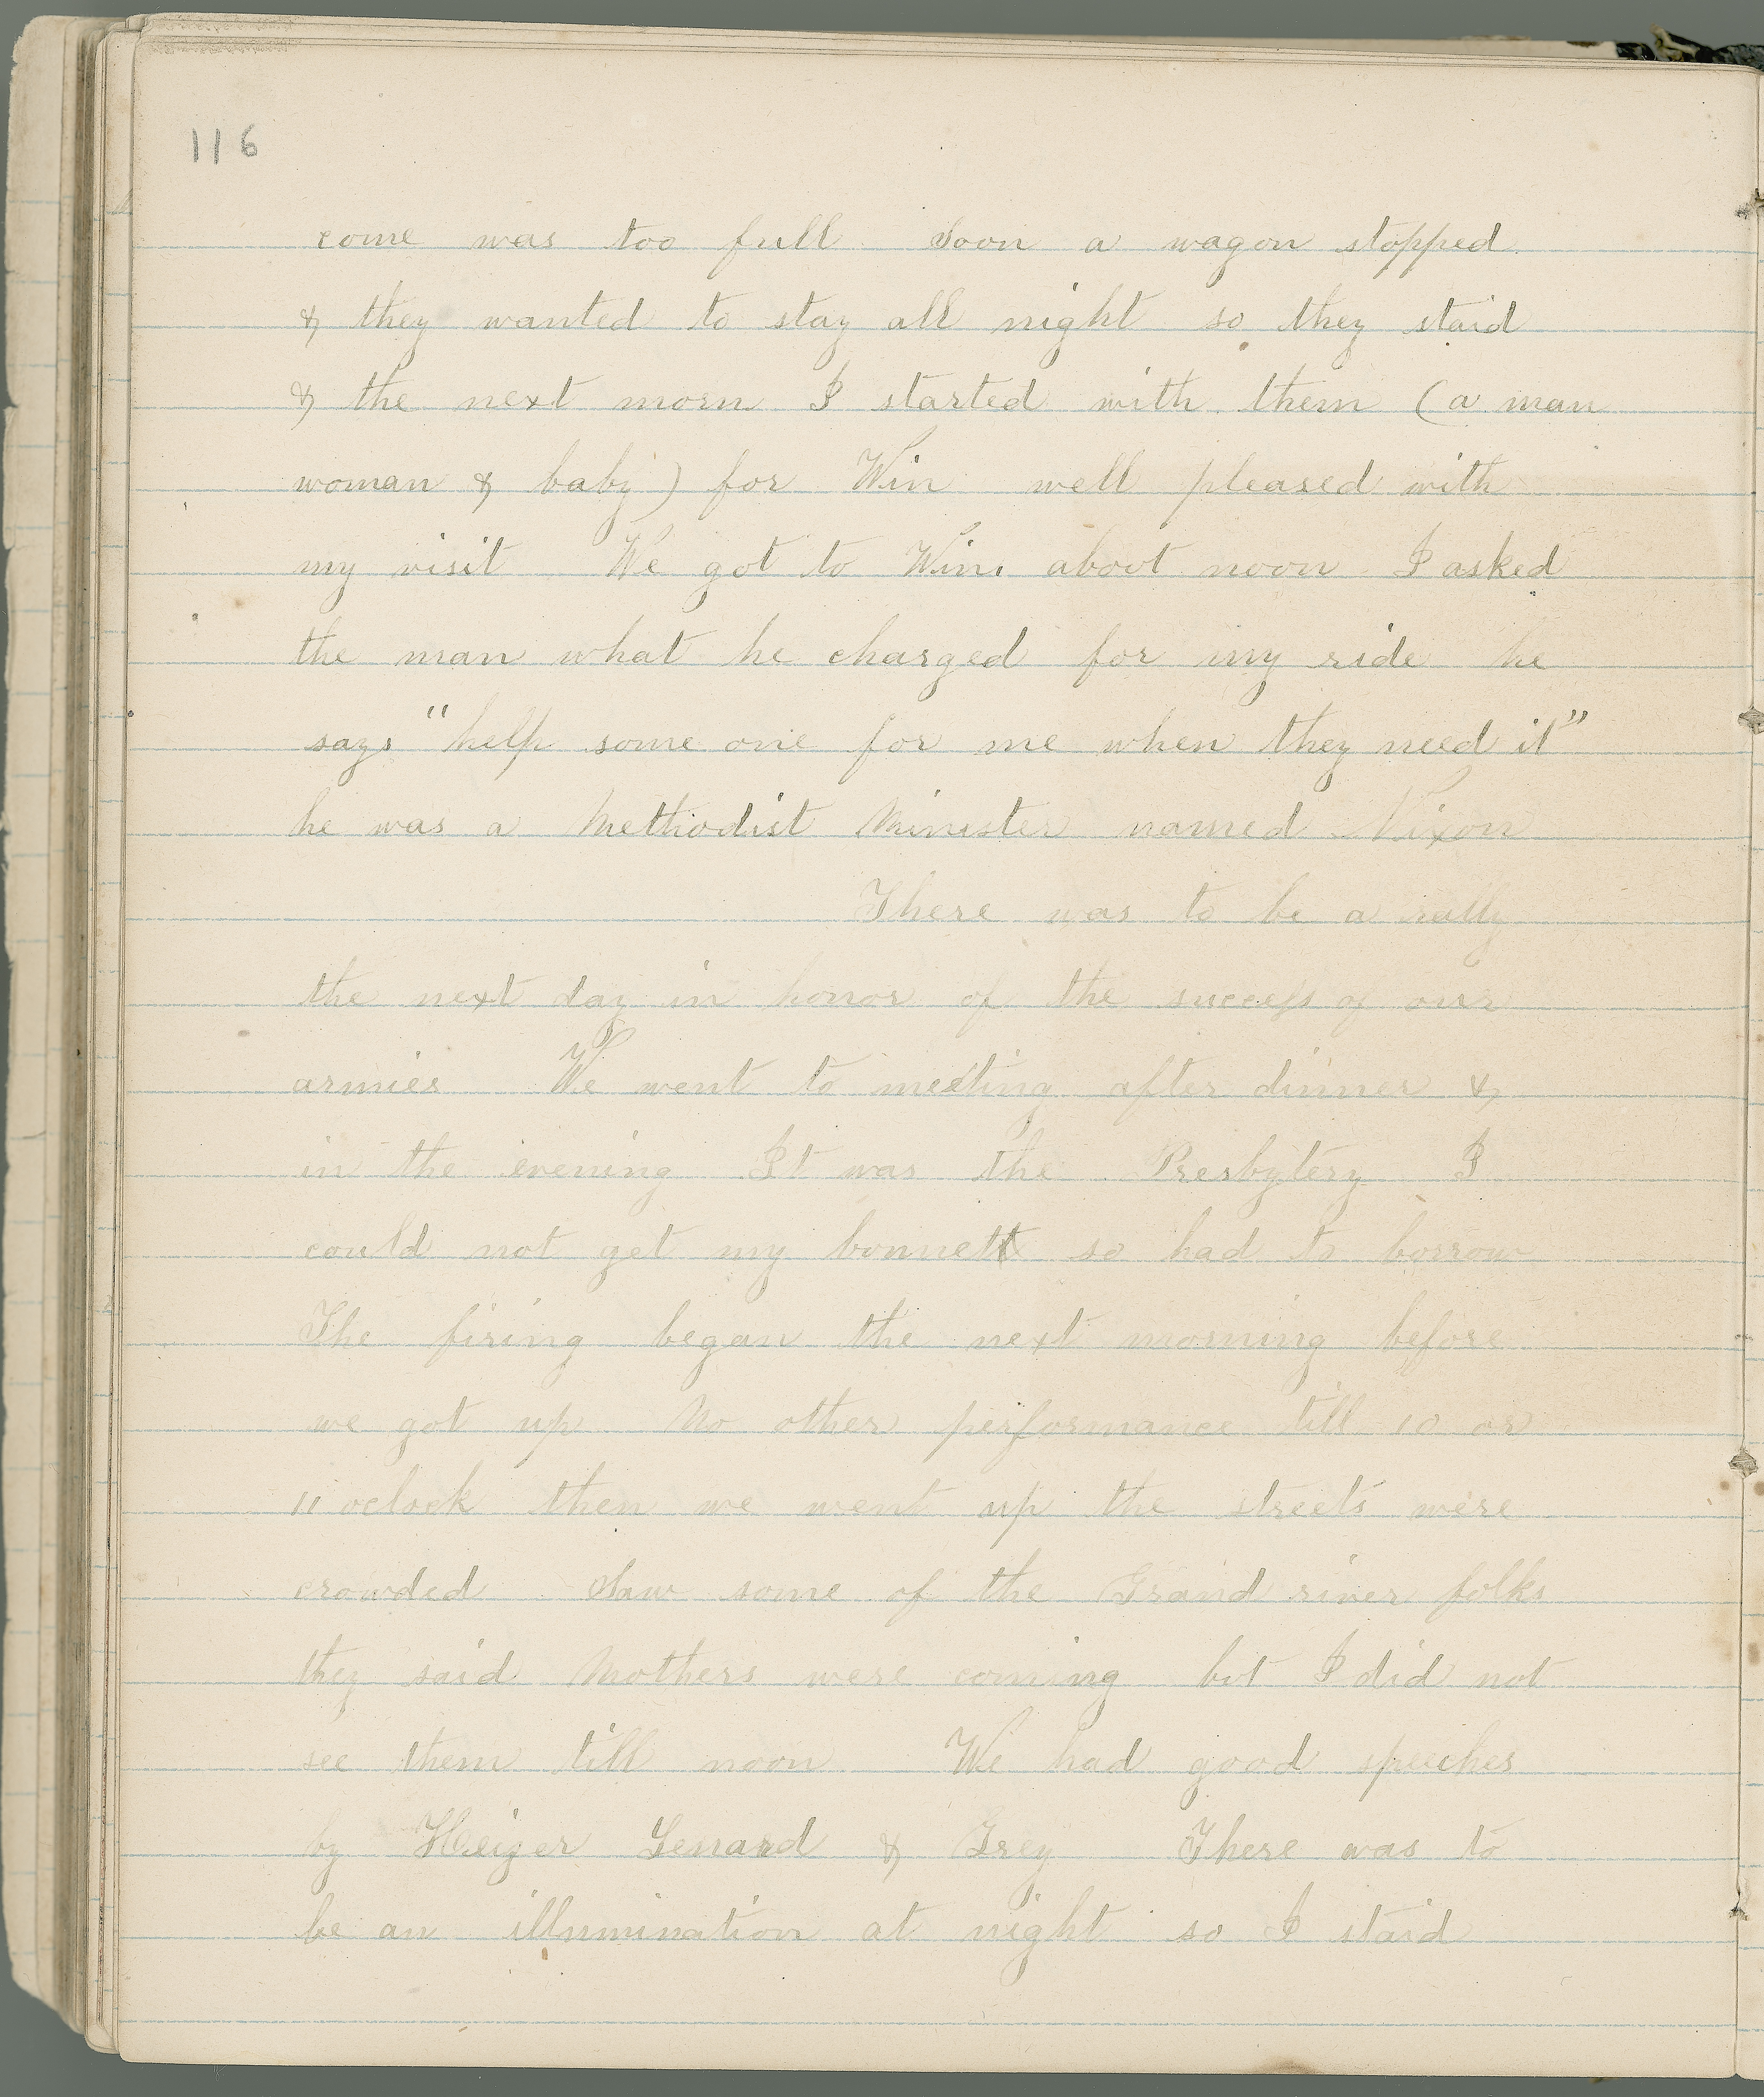 116
come was too full Soon a wagon stopped
& they wanted to stay all night so they staid
& the next morn I started with them (a man
woman & baby) for Win well pleased with
my visit We got to Win. about noon I asked
the man what he charged for my ride he
says "help some one for me when they need it"
he was a Methodist Minister named Nixon
There was to be a rally
the next day in honor of the success of our
armies We went to meeting after dinner &
in the evening It was the Presbytery I
could not get my bonnett so had to borrow
The firing began the next morning before
we got up No other performance till 10 or
11 oclock then we went up the streets were
crowded Saw some of the Grand river folks
they said Mothers were coming but I did not
see them till noon We had good speeches
by Heizer Lenard & Grey There was to
be an illumination at night so I staid